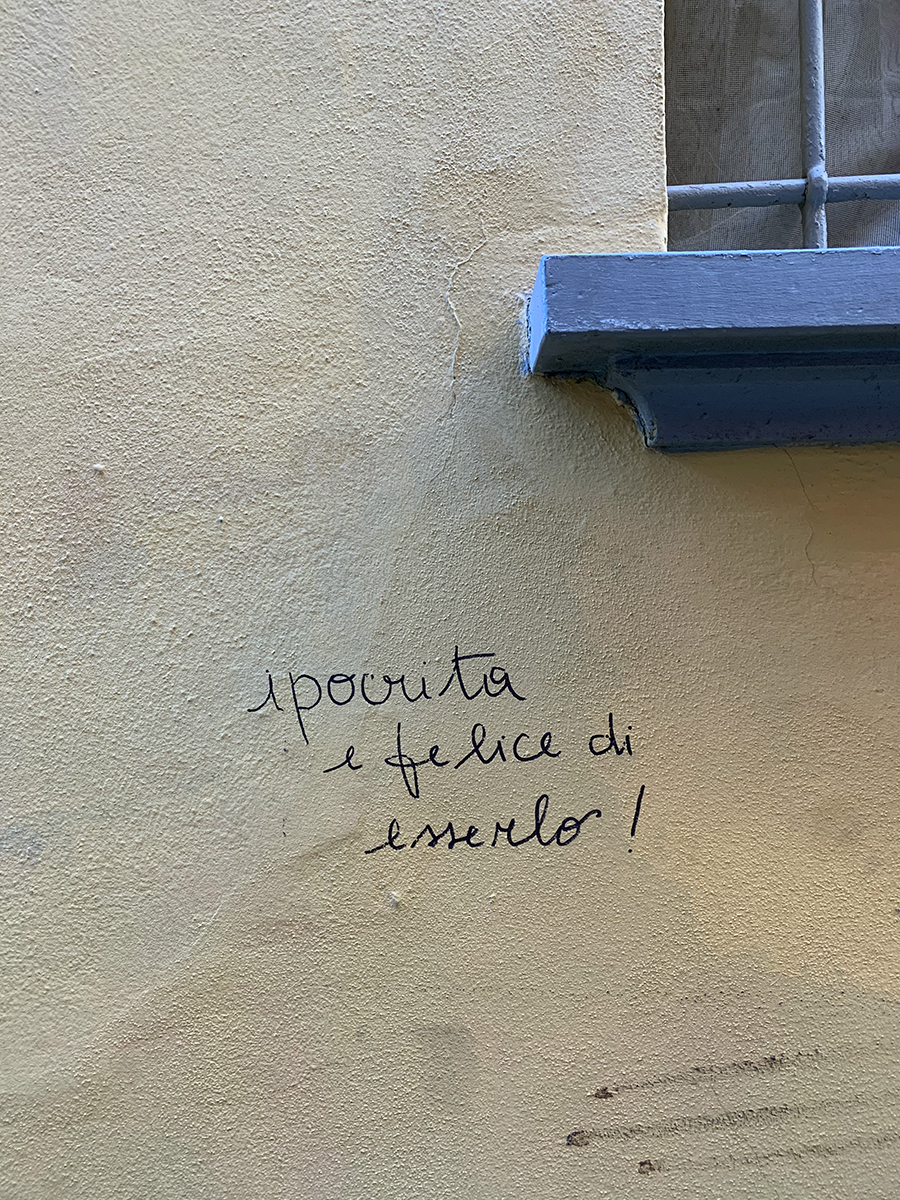 ipocrita
e felice di
esserlo!